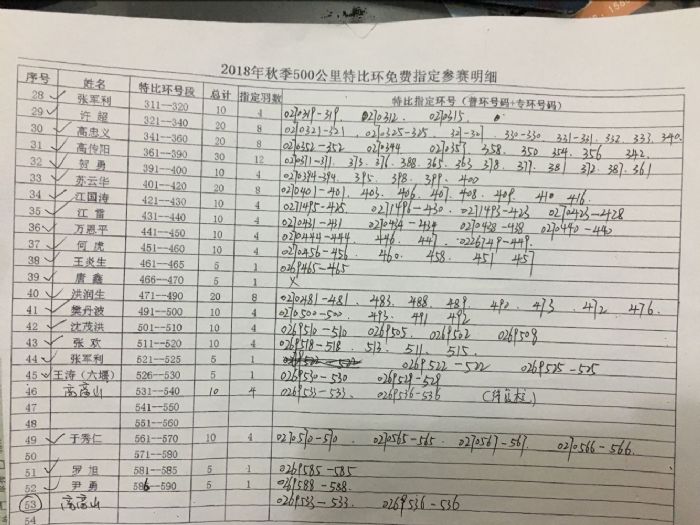 2018年秋季500公里特比环免费指定参赛明细
序号 姓名 特比环号段 总计 特比指定羽数 特比指定环号（普环号码+专环号码）
28 张军利 311--320 10 4 0270319-319. 0270312. 0270315.
29 许韶 321--340 20 8 0270321-321. 0270325-325. 330-330. 331-331. 332. 333. 340.
30 高忠义 341--360 20 8 0270352-352 0270344 358. 350 354. 356 342.
31 高传阳 361--390 30 12 373. 376. 388. 365. 363 378. 377. 381 372. 387. 361
32 贺勇 391--400 10 4 0270394-394. 395. 398. 399. 400
33 苏云华 401--420 20 8 0270401-401. 403. 406. 407. 408. 409. 410 416.
34 江国涛 421--430 10 4
35 江雷 431--440 10 4 0270431-431 0270434-434
36 万恩平 441--450 10 4 0270444-444. 446. 447. 0226749-449.
37 何虎 451--460 10 4 0270456-456 460. 458. 451 457
38 王炎生 461--465 5 1 0269465-465
39 唐鑫 466--470 5 1 X
40 洪润生 471--490 20 8 0270481-481. 483. 488. 489 490. 473. 472 476.
41 樊丹波 491--500 10 4 0270500-500. 493. 491 492
42 沈茂洪 501--510 10 4 0269510-510 0269505. 0269502 0269508
43 张欢 511--520 10 4 0269518-518. 513. 511. 515.
44 张军利 521--525 5 1 0269522-522 0269525-525
45 王涛（六堰） 526--530 5 1 0269530-530 0269528-528
46 高高山 531--540 10 4 0269533-533. 0269536-536
47 541--550
48 551--560
49 于秀仁 561--570 10 4 0270570-570. 0270565-565. 0270567-567 0270566-566.
50 571--580
51 罗旭 581--585 5 1 0269585-585
52 尹勇 586--590 5 1 0269588-588.
53 高高山 0269533-533. 0269536-536
54